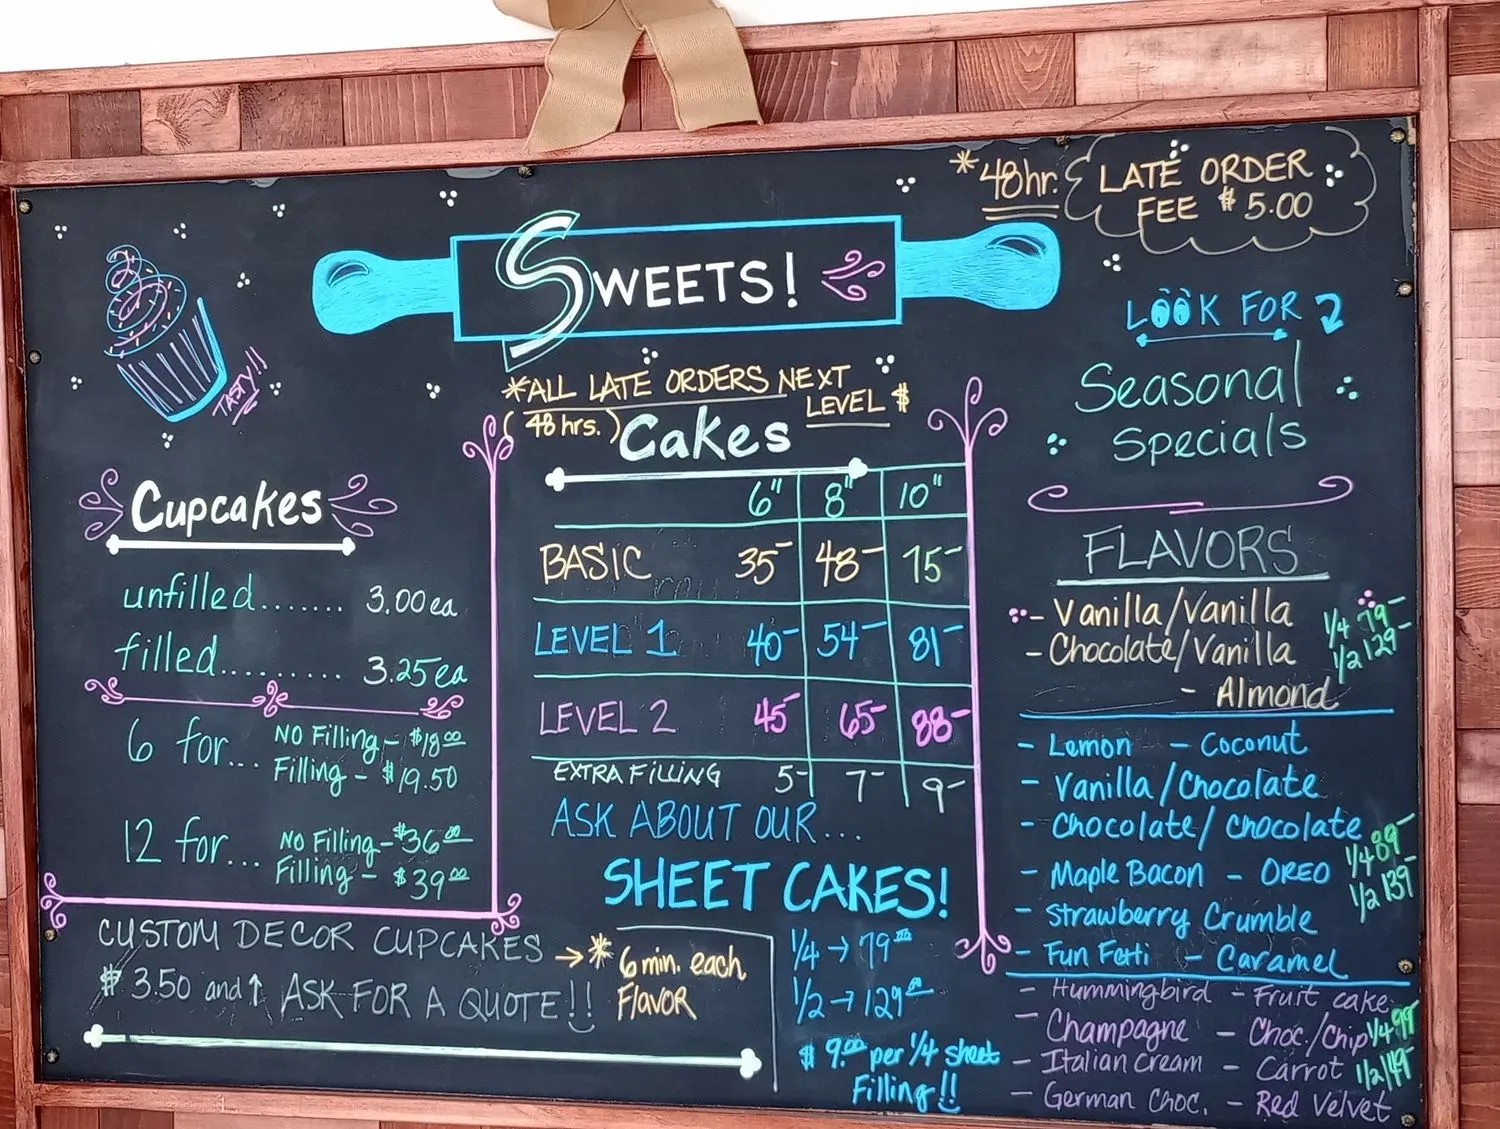 *48hr.
LATE ORDER
FEE $5.00
SWEETS!
TASTY!!
LOOK FOR
Seasonal
Specials
*ALL LATE ORDERS NEXT
LEVEL $
(48 hrs.)
Cupcakes
unfilled....... 3.00ea
filled.......... 3.25ea
6 for... NO Filling - $18.00
Filling - $19.50
12 for... NO Filling - $36.00
Filling - $39.00
CUSTOM DECOR CUPCAKES → * 6 min. each
FLAVOR
$3.50 and ↑ ASK FOR A QUOTE!!
Cakes
6" 8" 10"
BASIC 35- 48- 75-
LEVEL 1 40- 54- 81-
LEVEL 2 45- 65- 88-
EXTRA FILLING 5- 7- 9-
ASK ABOUT OUR...
SHEET CAKES!
1/4 → 79.00
1/2 → 129.00
$9.00 per 1/4 sheet
Filling!!
FLAVORS
- Vanilla/Vanilla
- Chocolate/Vanilla
- Almond
1/4 79-
1/2 129-
- Lemon - Coconut
- Vanilla/Chocolate
- Chocolate/Chocolate
- Maple Bacon - OREO
- Strawberry Crumble
- Fun Fetti - Caramel
1/4 89-
1/2 139-
- Hummingbird - Fruit cake
- Champagne - Choc./Chip
- Italian Cream - Carrot
- German Choc. - Red Velvet
1/4 99-
1/2 149-